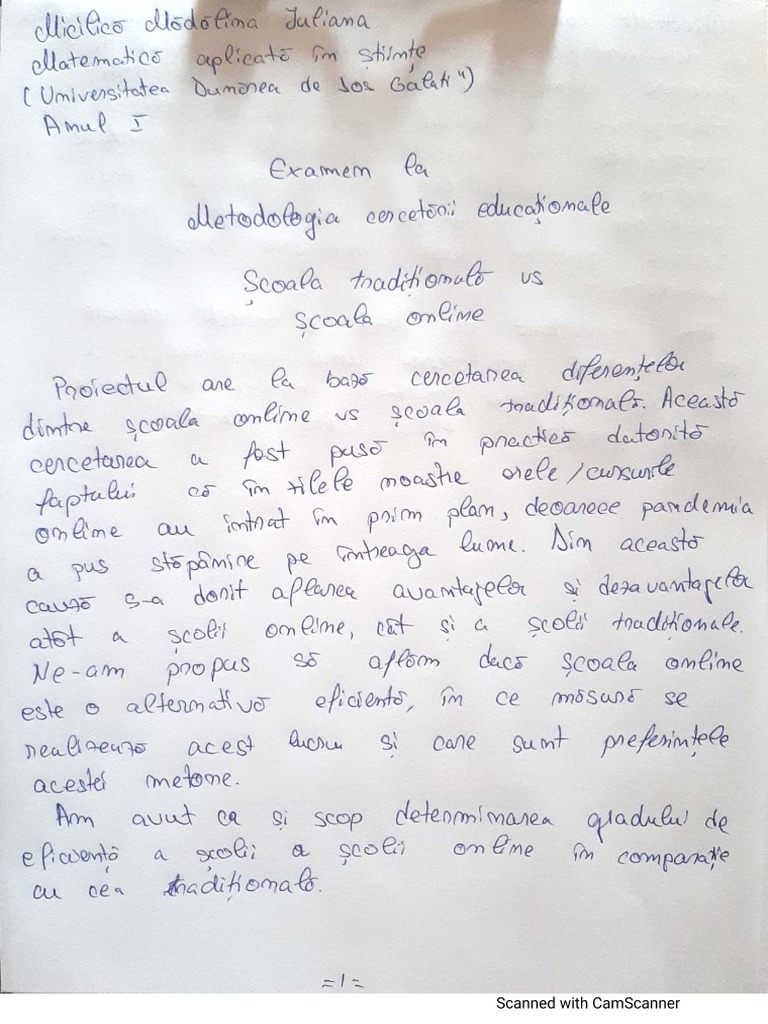 Micilică Mădălina Iuliana
Matematică aplicată în științe
(Universitatea Dunărea de Jos Galați")
Anul I
Examen la
Metodologia cercetării educaționale
Școala tradițională vs
școala online
Proiectul are la bază cercetarea diferențelor
dintre școala online vs școala tradițională. Această
cercetarea a fost pusă în practică datorită
faptului că în zilele noastre orele/cursurile
online au intrat în prim plan, deoarece pandemia
a pus stăpânire pe întreaga lume. Din această
cauză s-a dorit aflarea avantajelor și dezavantajelor
atât a școlii online, cât și a școlii tradiționale.
Ne-am propus să aflăm dacă școala online
este o alternativă eficientă, în ce măsură se
realizează acest lucru și care sunt preferințele
acestei metone.
Am avut ca și scop determinarea gradului de
eficiență a școlii a școlii online în comparație
cu cea tradițională.
=1=
Scanned with CamScanner